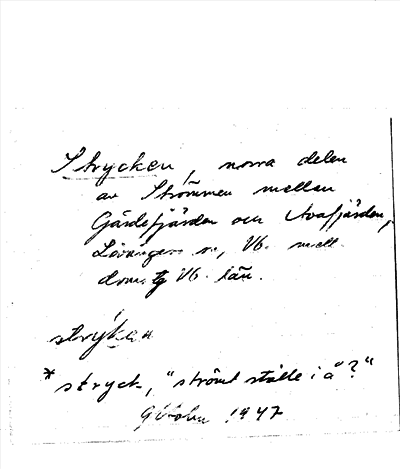 Strycken, norra delen
av Strömmen mellan
Gärdefjärden och Avafjärden,
Lövångers sn, Vb. mell.
doms. Vb. län.
strýkan
*stryck, "strömt ställe i å"?"
G Holm 1947